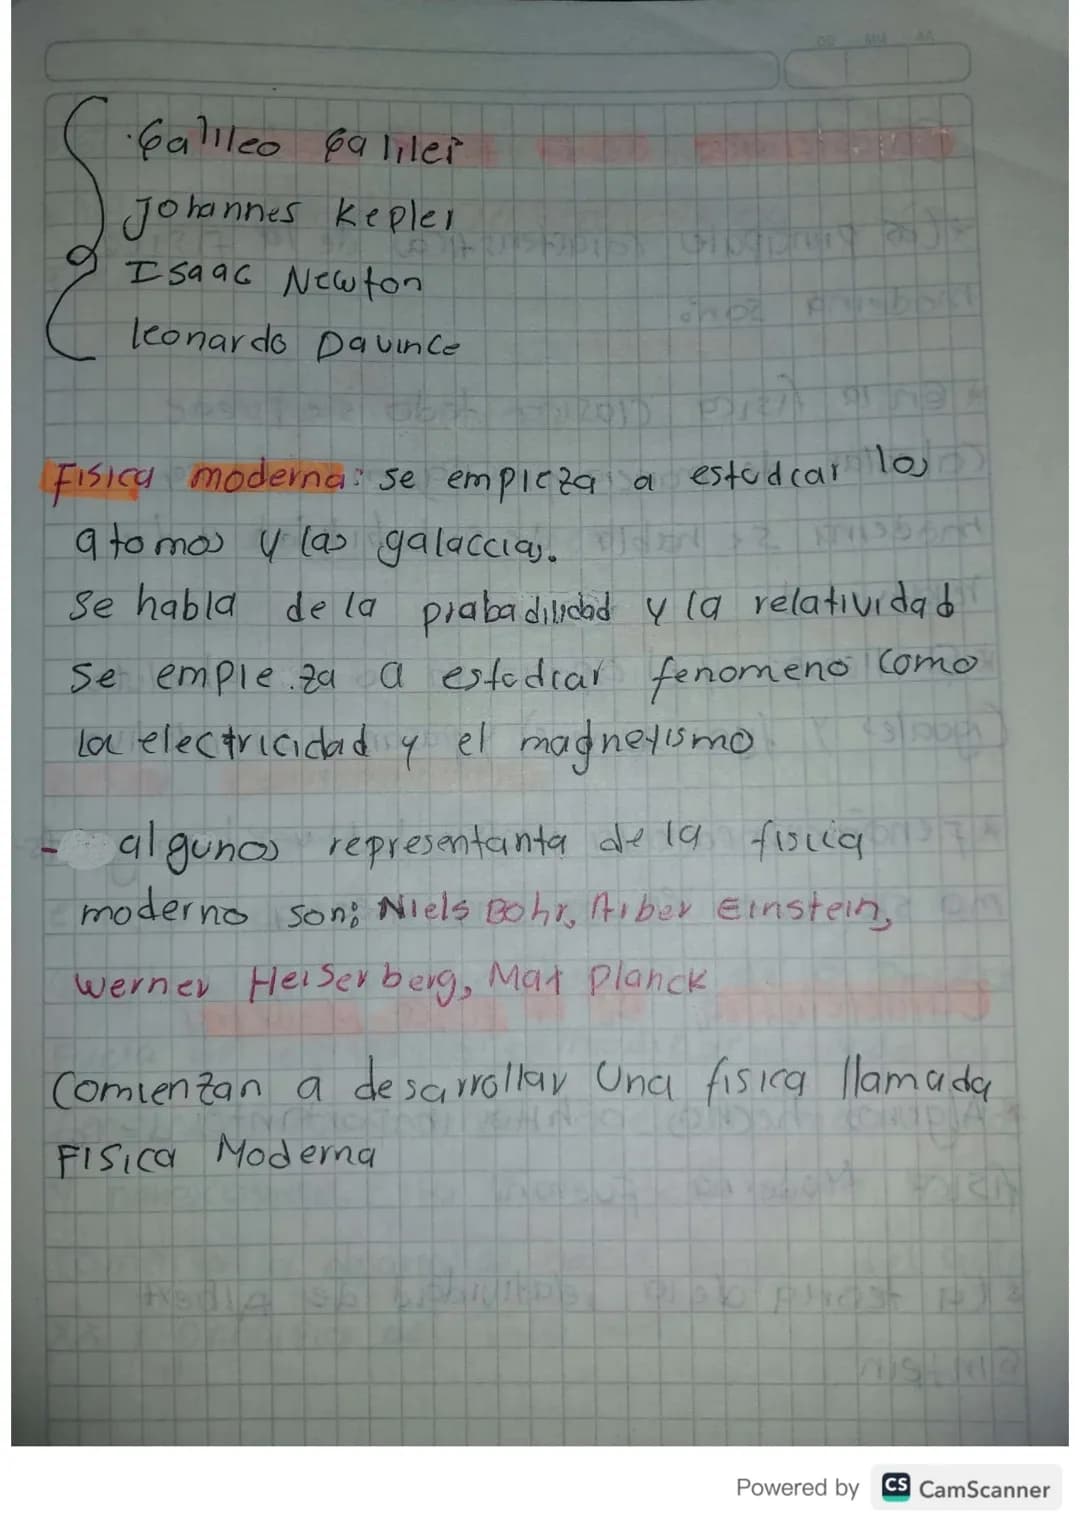 ·Galileo Galilei
Johannes Kepler
Isaac Newton
leonardo Davince
Fisica moderna: se empieza a estudiar los
atomos y las galaccias.
se habla de la prabadilidad y la relatividad
se empieza a estudiar fenomeno como
la electricidad y el magnetismo
- algunos representanta de la fisica
moderno son: Niels Bohr, Arber Einstein,
Werner Heiserberg, Max Planck
Comienzan a desarrollar Una fisica llamada
FISICA Moderna
Powered by CS CamScanner